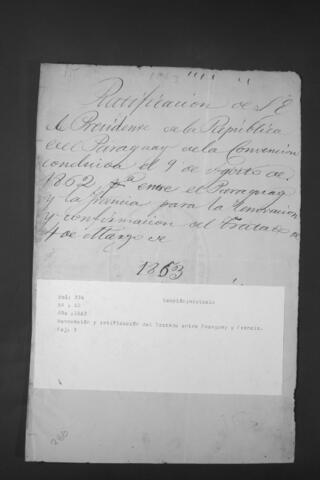 1863
Ratificacion de S. E.
el Presidente de la República
del Paraguay de la Convencion
concluida el 9 de Agosto de
1862 entre el Paraguay
y la Francia para la renovacion
y confirmacion del Tratado de
4 de Marzo de
1863
Vol: 334
Nº : 12
Año :1863
Renovación y ratificación del Tratado entre Paraguay y Francia.
Foj: 3